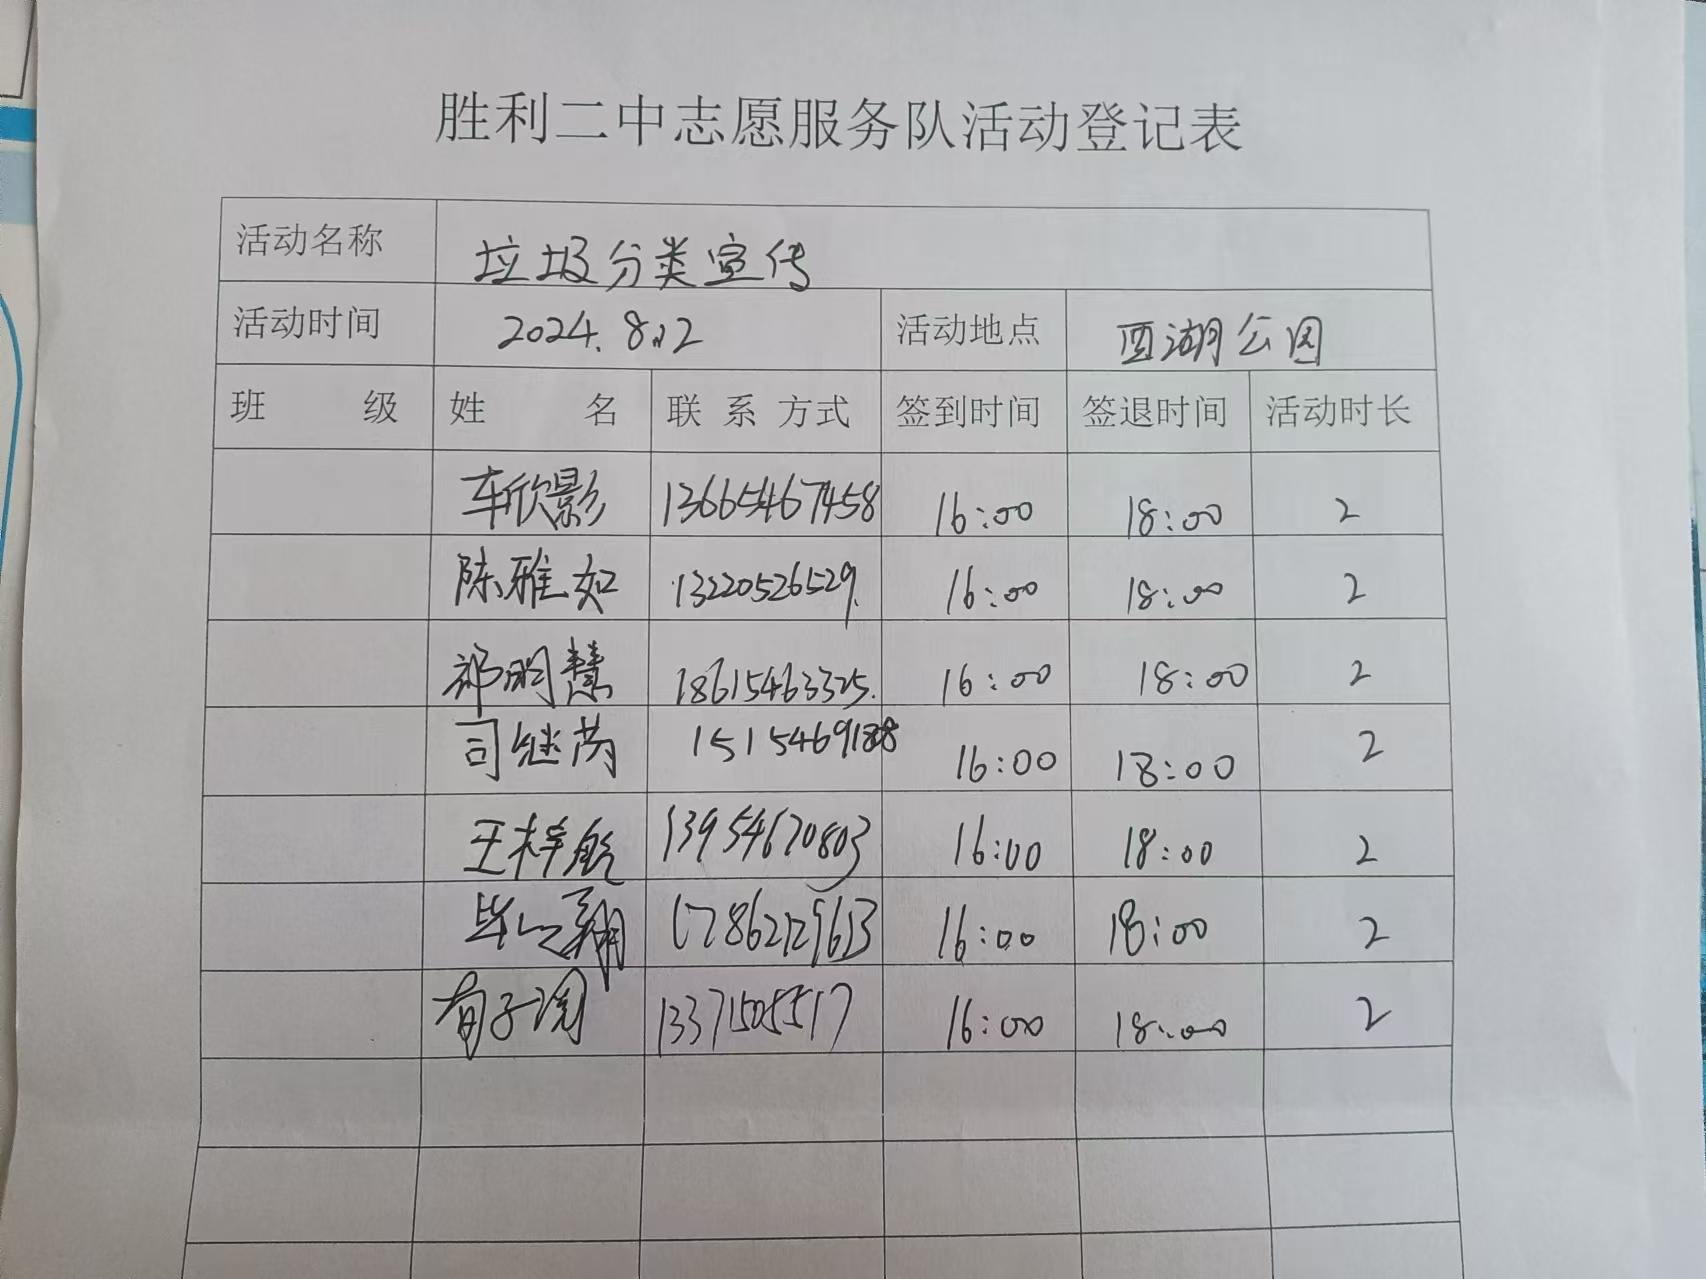 胜利二中志愿服务队活动登记表
活动名称 垃圾分类宣传
活动时间 2024.8.12 活动地点 西湖公园
班 级 姓 名 联 系 方式 签到时间 签退时间 活动时长
车欣影 13665467458 16:00 18:00 2
陈雅如 13220526529 16:00 18:00 2
祁明慧 18615463325 16:00 18:00 2
司继芮 16:00 18:00 2
王梓航 13954670803 16:00 18:00 2
16:00 18:00 2
13371505517 16:00 18:00 2